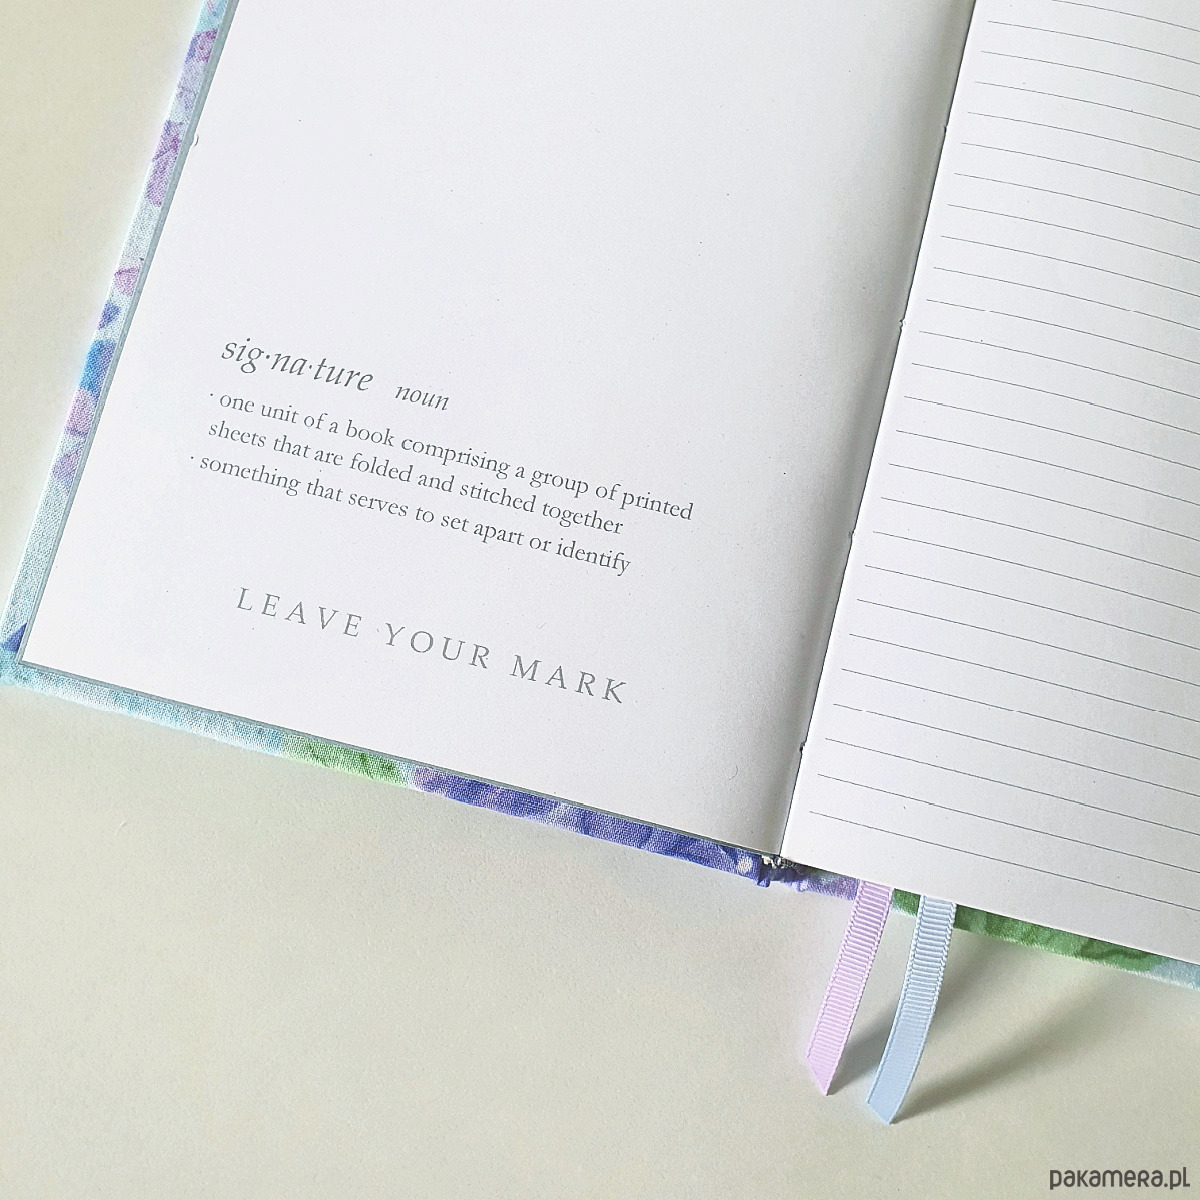 sig·na·ture noun
· one unit of a book comprising a group of printed
sheets that are folded and stitched together
· something that serves to set apart or identify
LEAVE YOUR MARK
pakamera.pl